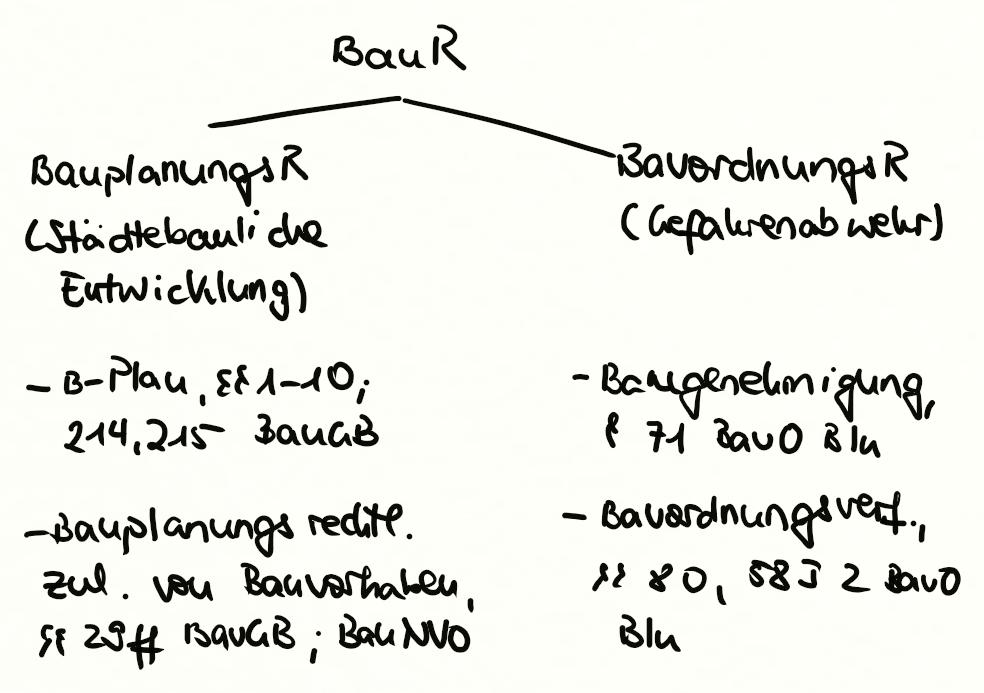 BauR
BauplanungsR
(Städtebauliche
Entwicklung)
- B-Plan, §§ 1-10;
214, 215 BauGB
- Bauplanungsrechtl.
Zul. von Bauvorhaben,
§§ 29ff BauGB; BauNVO
BauordnungsR
(Gefahrenabwehr)
- Baugenehmigung,
§ 71 BauO Bln
- Bauordnungsverf.,
§§ 80, 58 I 2 BauO
Bln